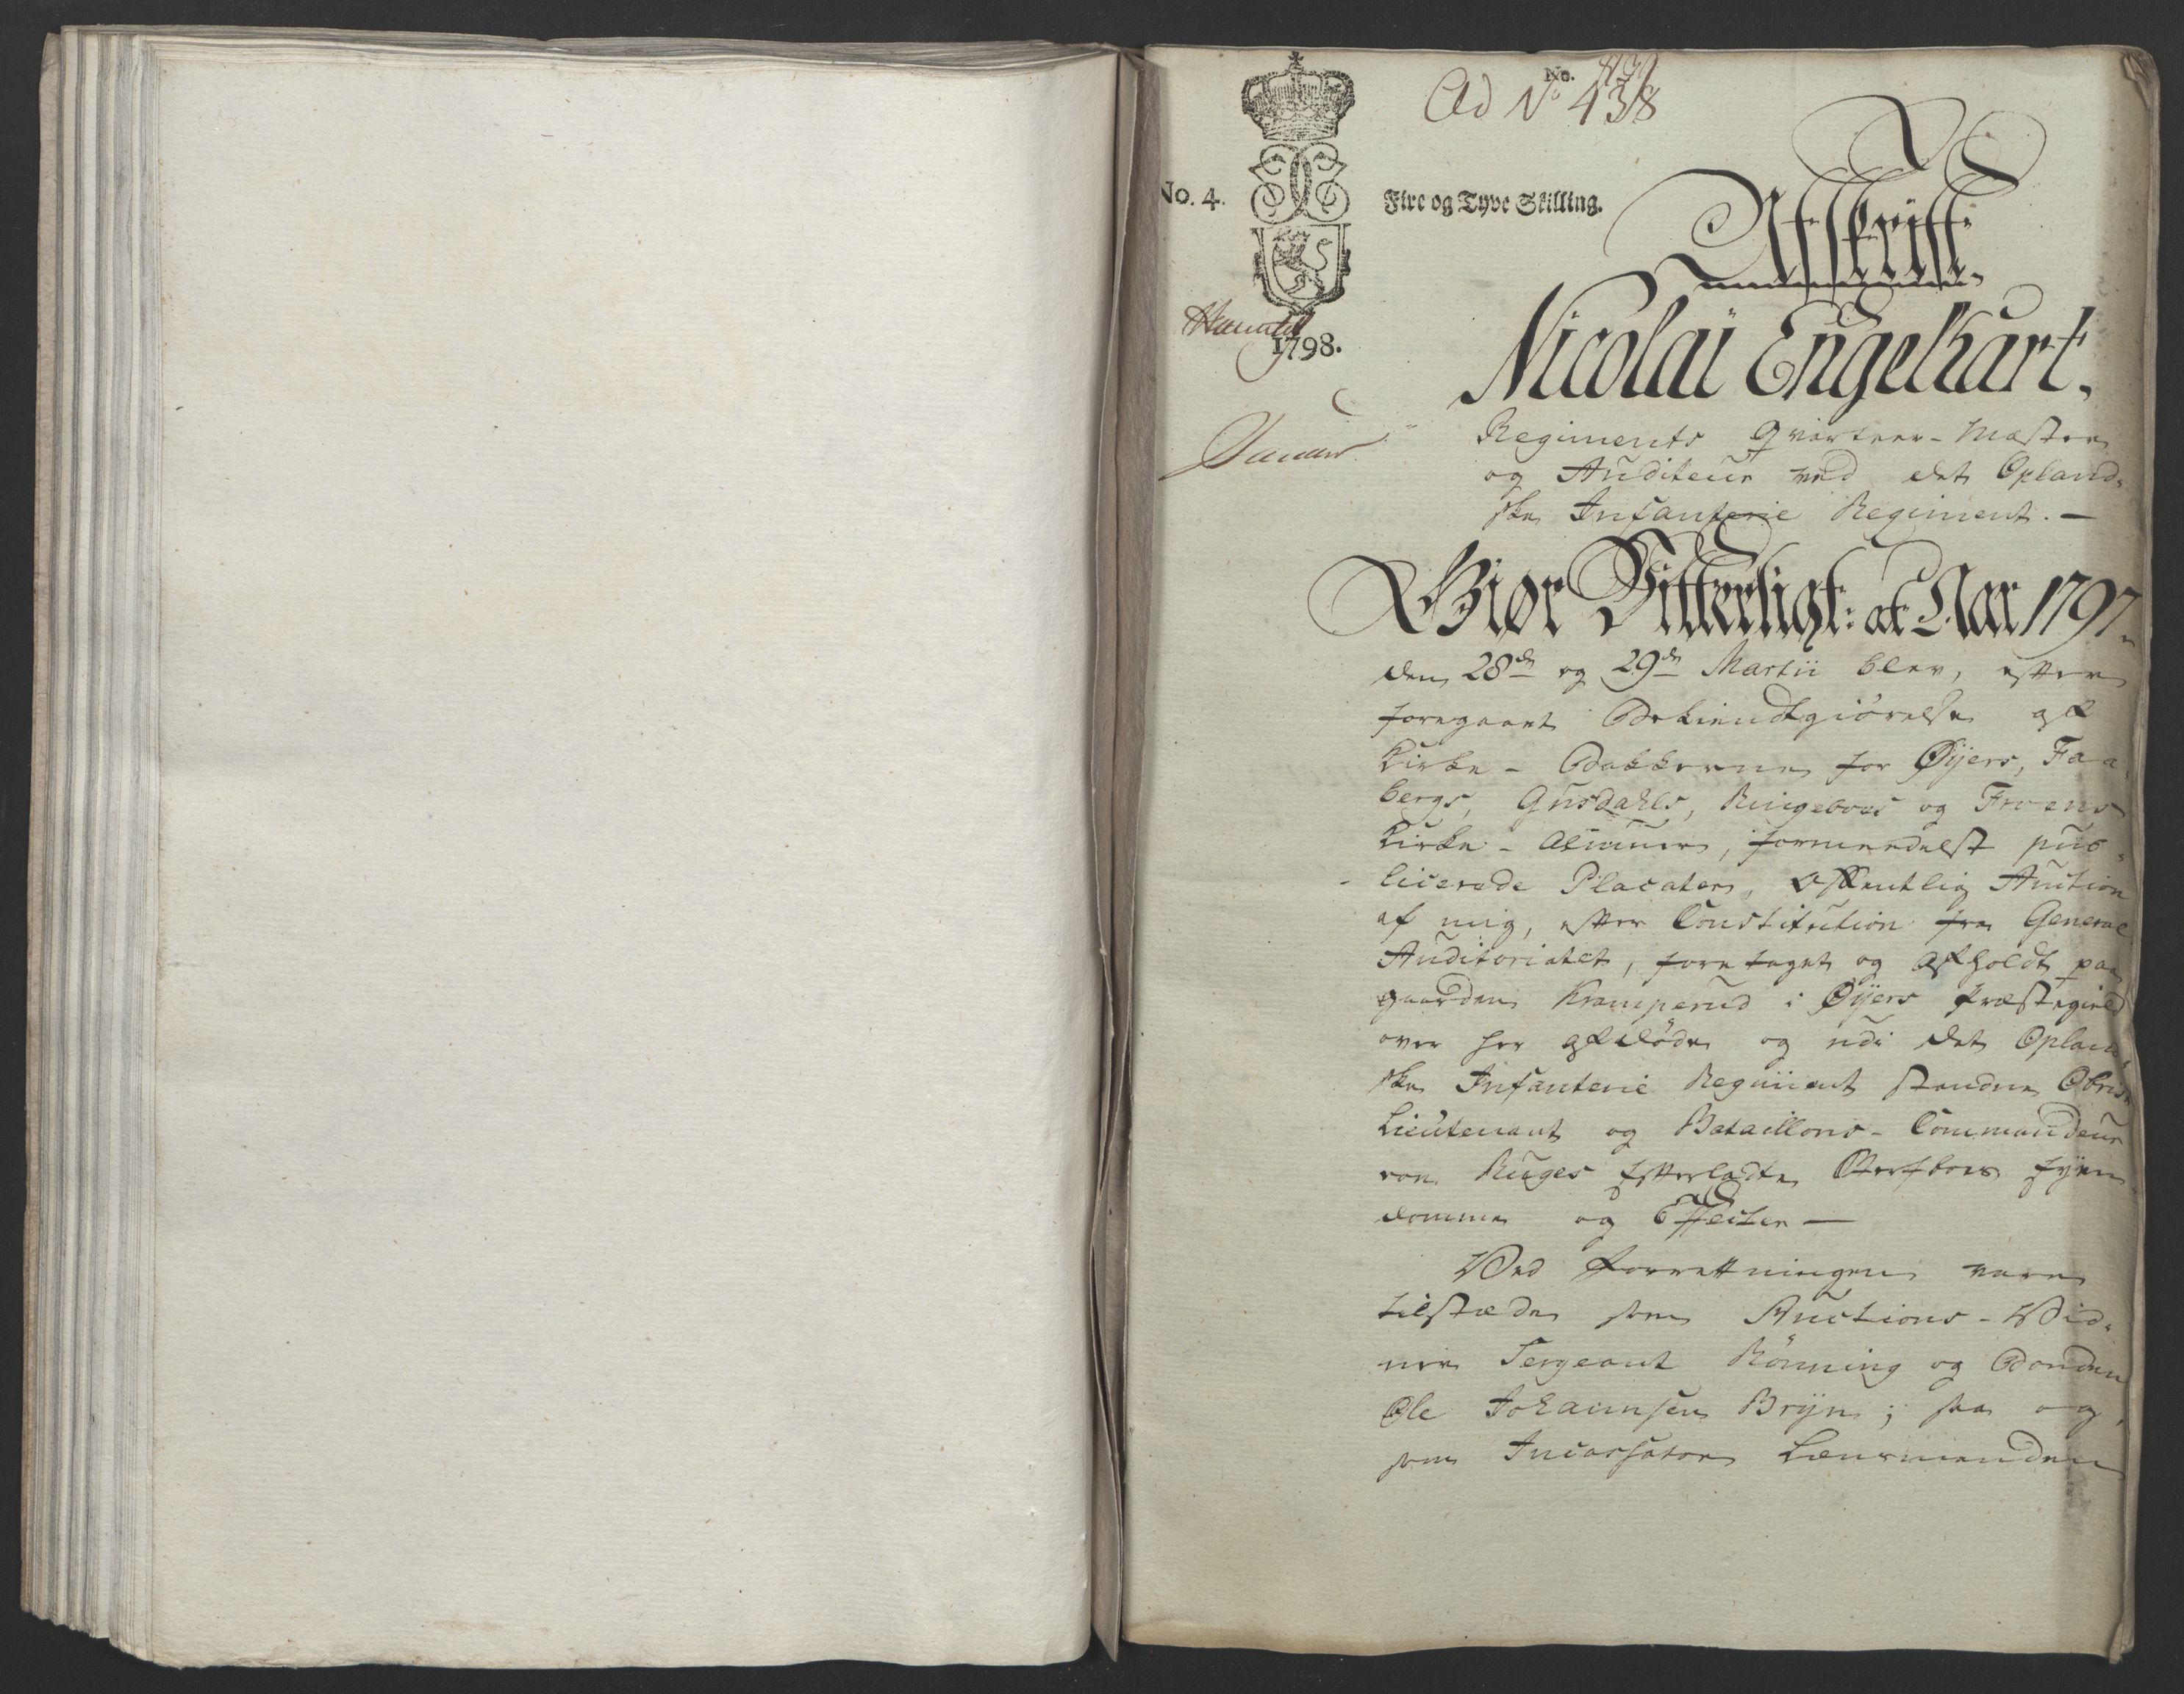 No.
Ad No 438
No. 4.
Fire og Tyve Skilling.
1798.
Afskrift.
Nicolai Engelhart,
Regiments Qvarteer-Mæster
og Auditeur ved det Opland-
ske Infanterie Regiment. —
Giør Vitterligt: at Aar 1797
den 28de og 29de Martii blev, efter
foregaaet Bekiendtgiørelse af
Kirke-Bakkerne for Øyers, Faa-
bergs, Gusdahls, Ringeboes og Froens
Kirke-Almuer, formedelst pub-
licerede Placater, offentlig Auction
af mig, efter Constitution fra General
Auditoriatet, foretaget og afholdt paa
gaarden Kramperud i Øyers Præstegield
over her afdøde og udi det Opland-
ske Infanterie Regiment staaende Obrist
Lieutenant og Bataillons-Commandeur
von Kuges Efterladte Sterfboes Eyen-
domme og Effecter —
Ved Forretningen vare
tilstæde som Auctions-Vid-
ner Sergeant Rönning og Bonden
Ole Johannsen Bryn; saa og,
som Incassator Lænsmanden